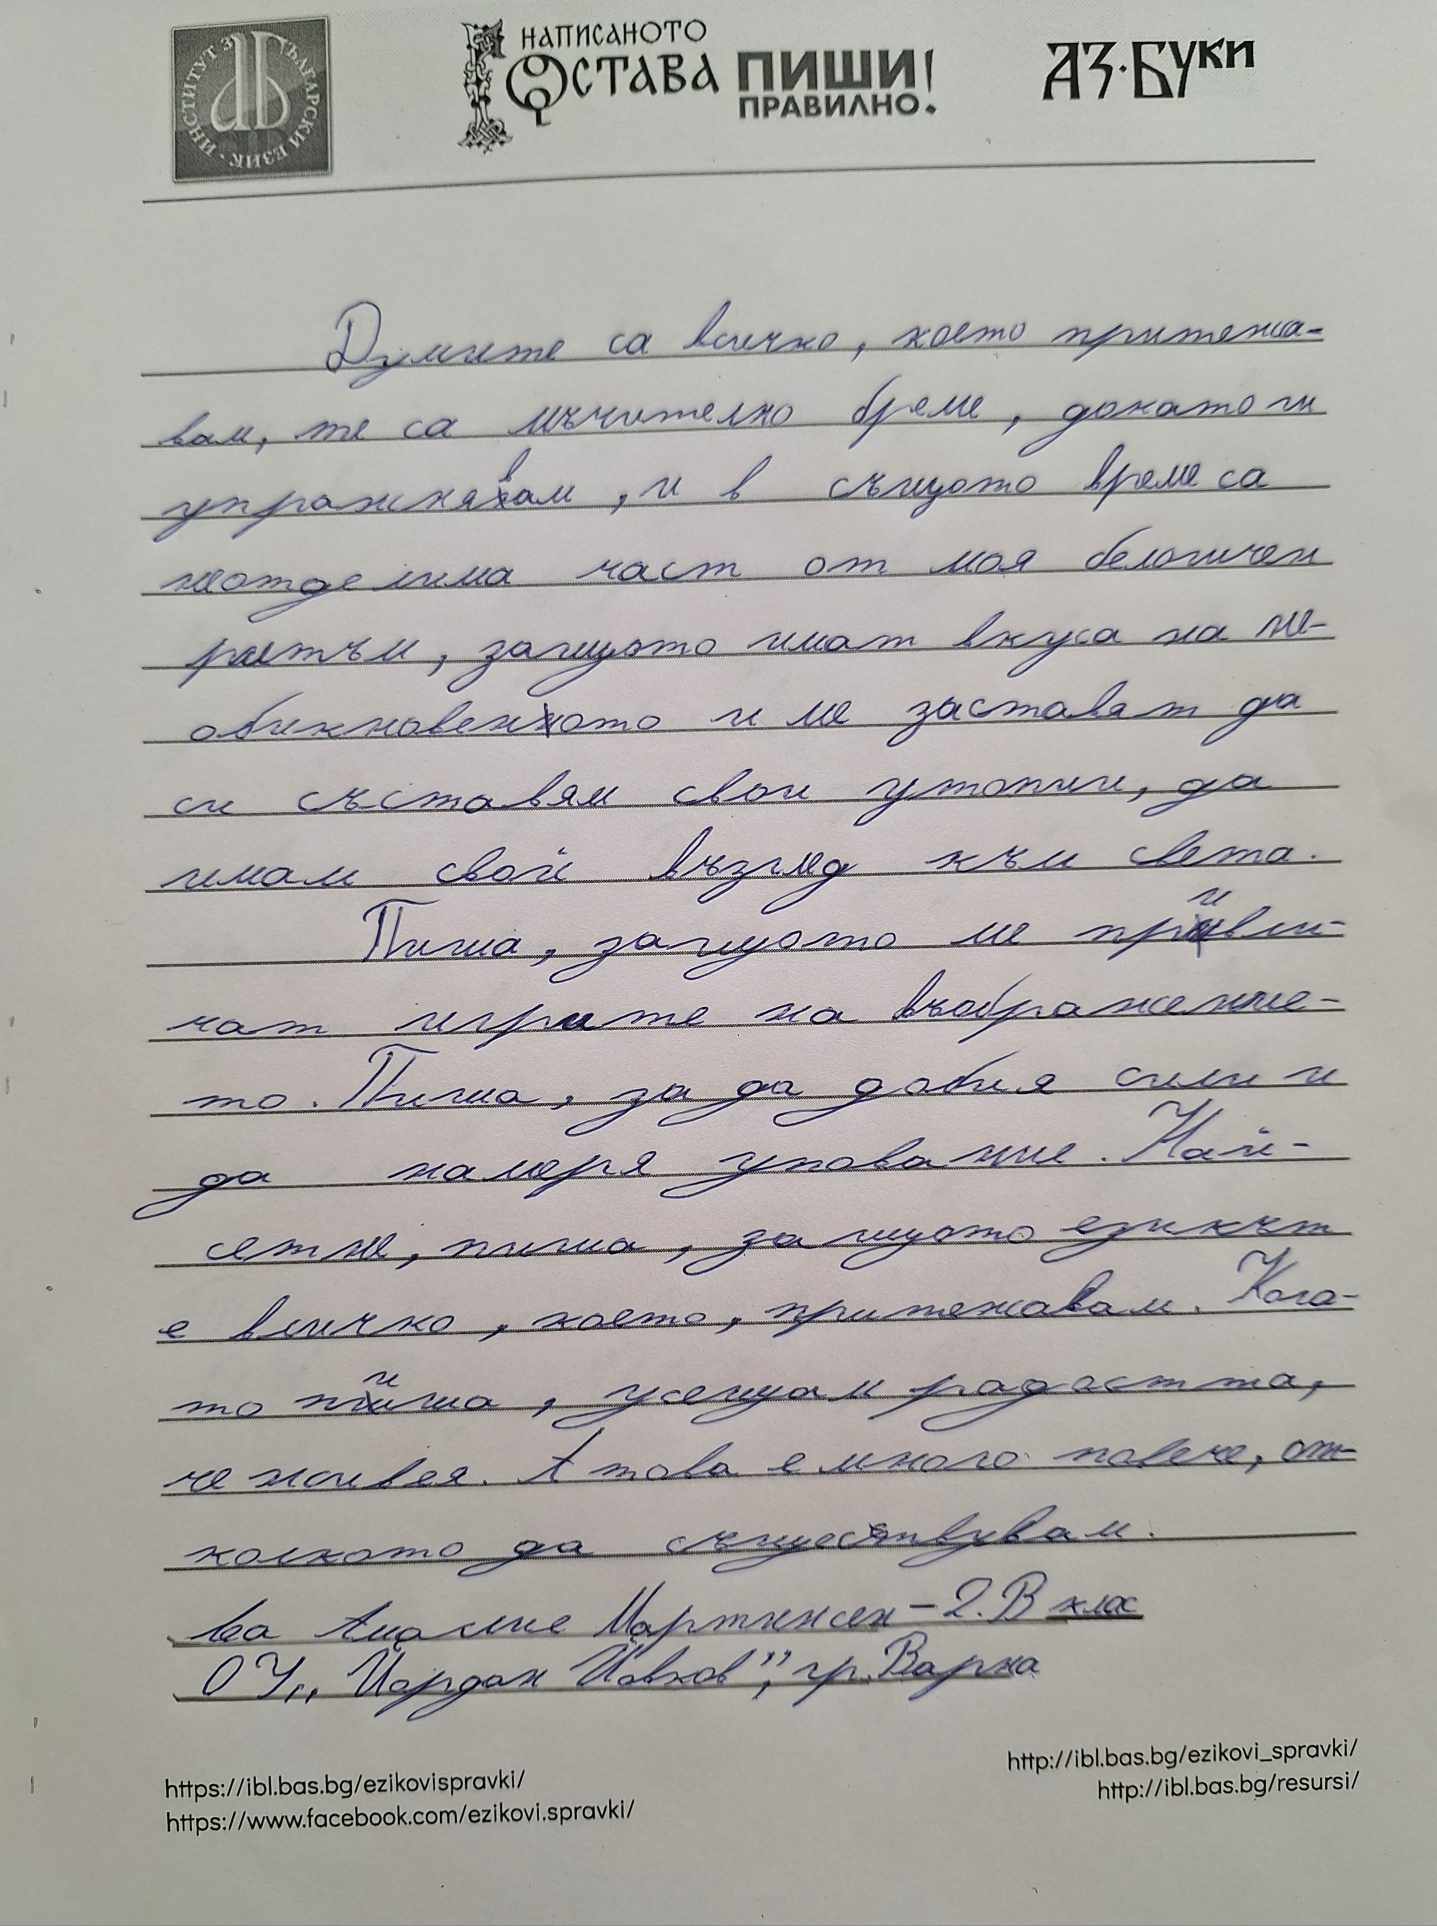 ИНСТИТУТ ЗА БЪЛГАРСКИ ЕЗИК
НАПИСАНОТО
ОСТАВА
ПИШИ
ПРАВИЛНО!
АЗ·БУКИ
Думите са всичко, което притежа-
вам, те са мъчително бреме, докато ги
упражнявам, и в същото време са
неотделима част от моя белогичен
ритъм, защото имат вкуса на не-
обикновеното и ме заставят да
си съставям свои утопии, да
имам свой възглед към света.
Пиша, защото ме приви-
чат игрите на въображение-
то. Пиша, за да добия сили и
да намеря упование. Най-
сетне, пиша, защото езикът
е всичко, което, притежавам. Кога-
то пиша, усещам радостта,
че живея. А това е много повече, от-
колкото да съществувам.
Ева Амалие Мартинсен – 2. В клас
ОУ „Йордан Йовков”, гр. Варна
https://ibl.bas.bg/ezikovispravki/
https://www.facebook.com/ezikovi.spravki/
http://ibl.bas.bg/ezikovi_spravki/
http://ibl.bas.bg/resursi/